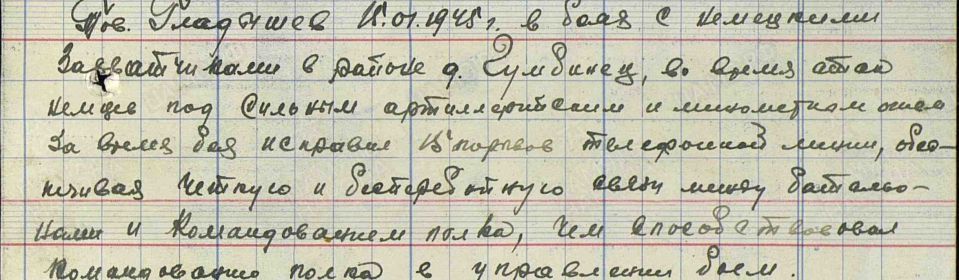 Тов. Гладышев 15.01.1945 г. в боях с немецкими
захватчиками в районе д. Гумбинец, во время атак
немцев под сильным артиллерийским и минометном огнем
за время боя исправил 15 порывов телефонной линии, обес-
печивая четкую и бесперебойную связь между батальо-
нами и командованием полка, чем способствовал
командование полка в управлении боем.